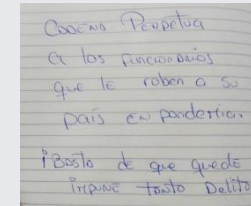 Cadena Perpetua
a los funcionarios
que le roben a su
país en pandemia.
¡Basta de que quede
impune tanto Delito